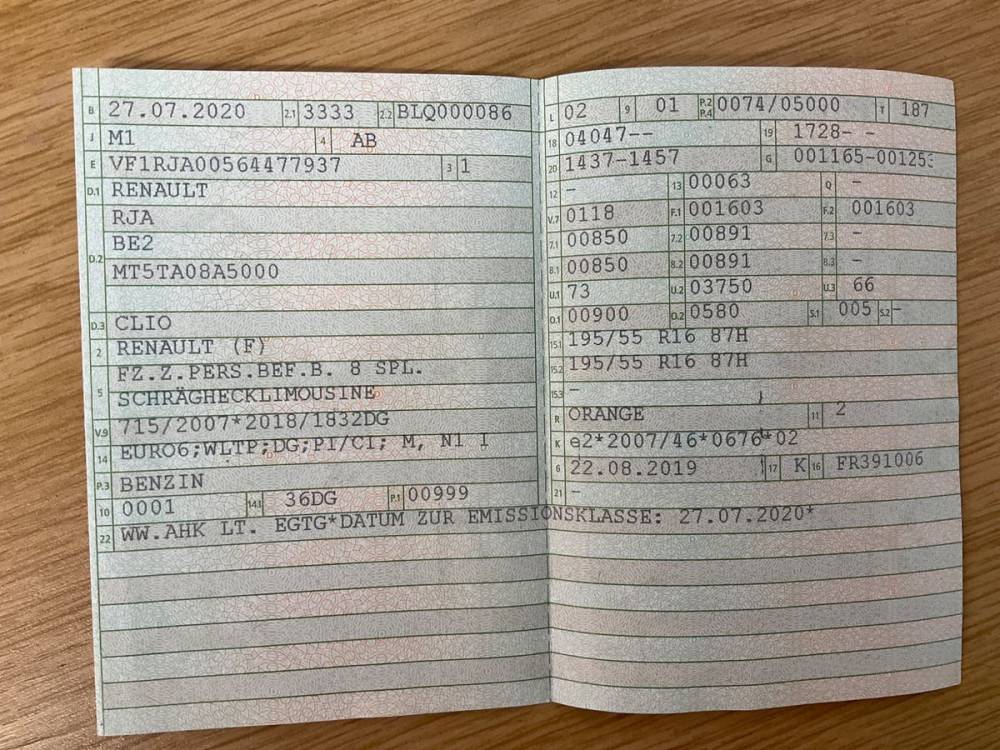 B 27.07.2020 2.1 3333 2.2 BLQ000086
J M1 4 AB
E VF1RJA00564477937 3 1
D.1 RENAULT
D.2 RJA
BE2
MT5TA08A5000
D.3 CLIO
2 RENAULT (F)
5 FZ.Z.PERS.BEF.B. 8 SPL.
SCHRÄGHECKLIMOUSINE
V.9 715/2007*2018/1832DG
14 EURO6;WLTP;DG;PI/CI; M, N1 I
P.3 BENZIN
10 0001 14.1 36DG P.1 00999
22 WW.AHK LT. EGTG*DATUM ZUR EMISSIONSKLASSE: 27.07.2020*
L 02 9 01 P.2 P.4 0074/05000 T 187
18 04047-- 19 1728- -
20 1437-1457 G 001165-001253
12 - 13 00063 Q -
V.7 0118 F.1 001603 F.2 001603
7.1 00850 7.2 00891 7.3 -
8.1 00850 8.2 00891 8.3 -
U.1 73 U.2 03750 U.3 66
O.1 00900 O.2 0580 S.1 005 S.2 -
15.1 195/55 R16 87H
15.2 195/55 R16 87H
15.3 -
R ORANGE 11 2
K e2*2007/46*0676*02
6 22.08.2019 17 K 16 FR391006
21 -